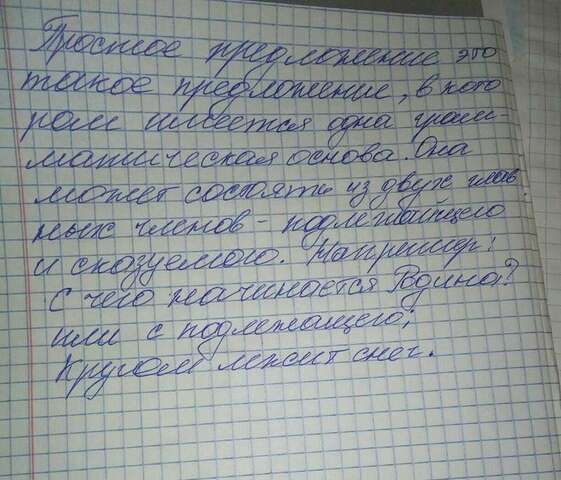 Простое предложение это
такое предложение, в кото
ром имеется одна грам-
матическая основа. Она
может состоять из двух глав
ных членов - подлежащего
и сказуемого. Например:
С чего начинается Родина?
или с подлежащего;
Кругом лежит снег.